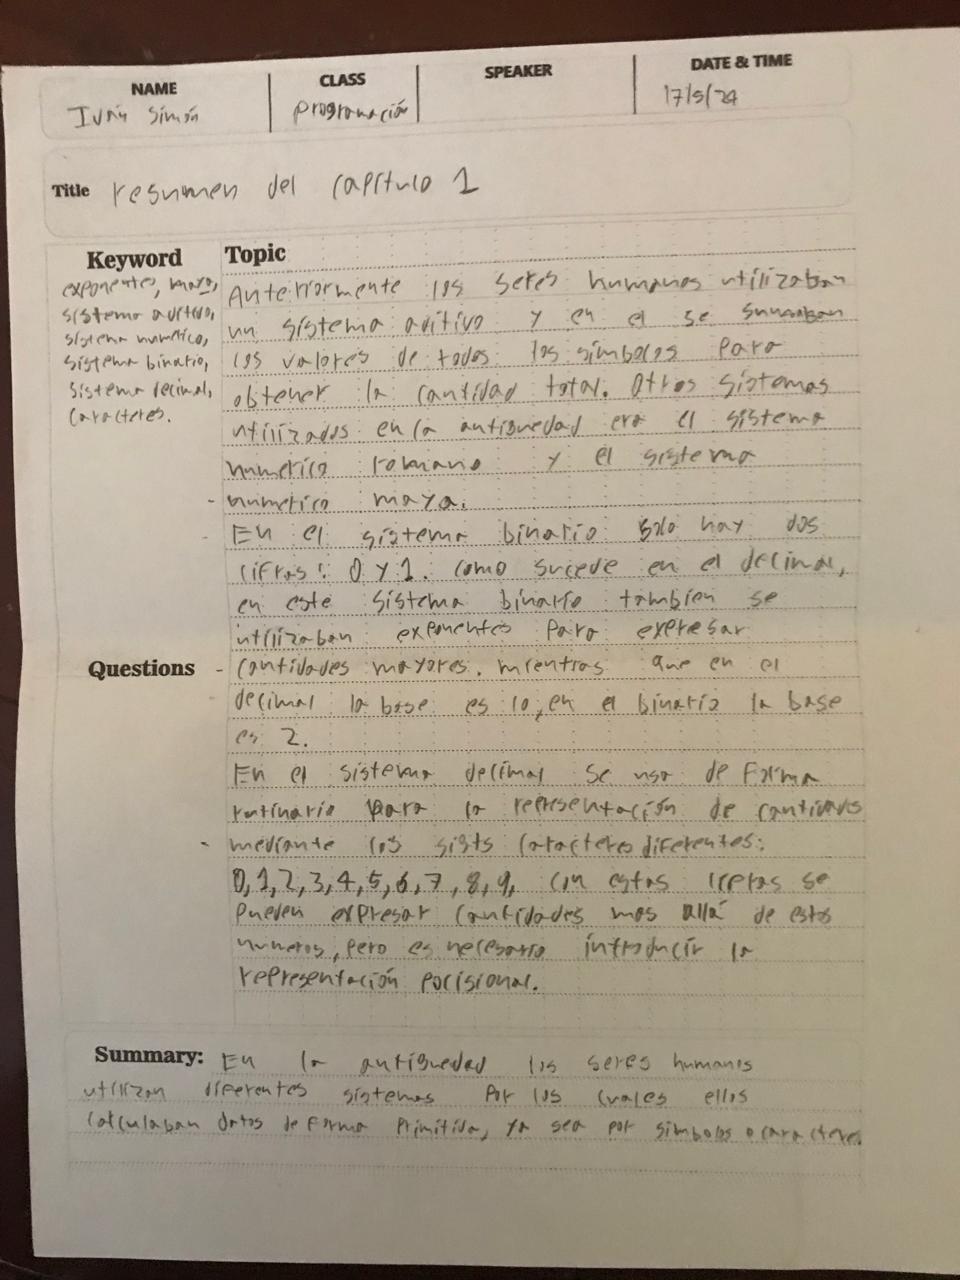 NAME
CLASS
SPEAKER
DATE & TIME
Iván Simón
programación
17/5/24
Title resumen del capítulo 1
Keyword
exponentes, maya,
sistema aditivo,
sistema numerico,
sistema binario,
sistema decimal,
caracteres.
Topic
Anteriormente los seres humanos utilizaban
un sistema aditivo y en el se sumaban
los valores de todos los símbolos para
obtener la cantidad total. Otros sistemas
utilizados en la antiguedad era el sistema
numerico romano y el sistema
- numerico maya.
En el sistema binario solo hay dos
cifras: 0 y 1. como sucede en el decimal,
en este sistema binario tambien se
utilizaban exponentes para expresar
Questions
- cantidades mayores. mientras que en el
decimal la base es 10, en el binario la base
es 2.
En el sistema decimal se usa de forma
rutinaria para la representación de cantidades
- mediante los caracteres diferentes:
0, 1, 2, 3, 4, 5, 6, 7, 8, 9, con estas se
pueden expresar cantidades mas allá de estos
numeros, pero es necesario introducir la
representación pocisional.
Summary: En la antiguedad los seres humanos
utilizan diferentes sistemas por los cuales ellos
calculaban datos de forma primitiva, ya sea por simbolos o caracteres